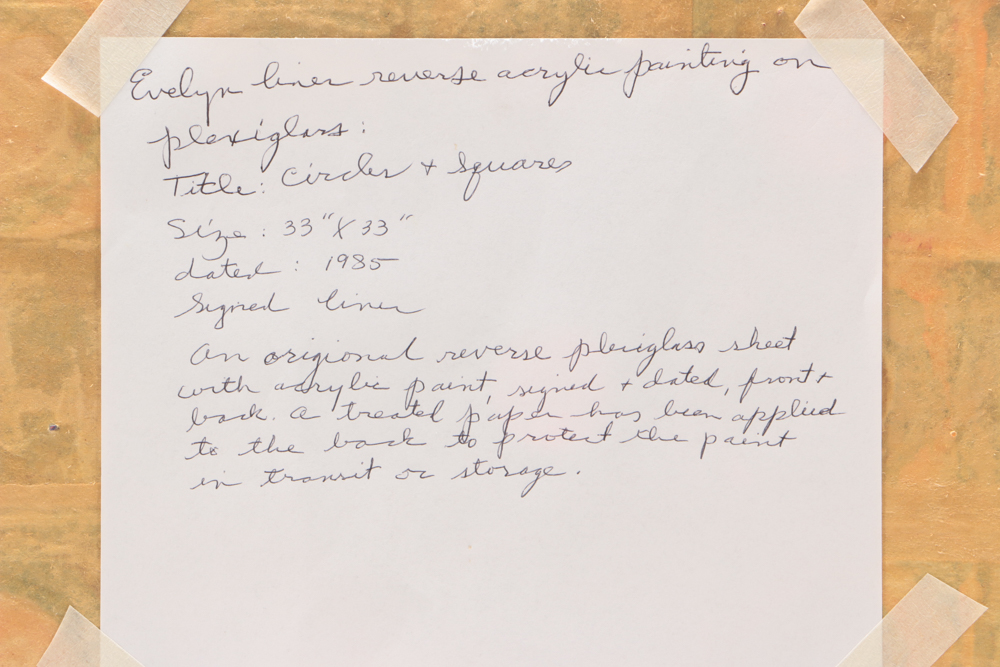 Evelyn liner reverse acrylic painting on
plexiglass:
Title: Circles + Squares
Size: 33" X 33"
dated: 1985
Signed liner
An origional reverse plexiglass sheet
with acrylic paint, signed + dated, front +
back. A treated paper has been applied
to the back to protect the paint
in transit or storage.